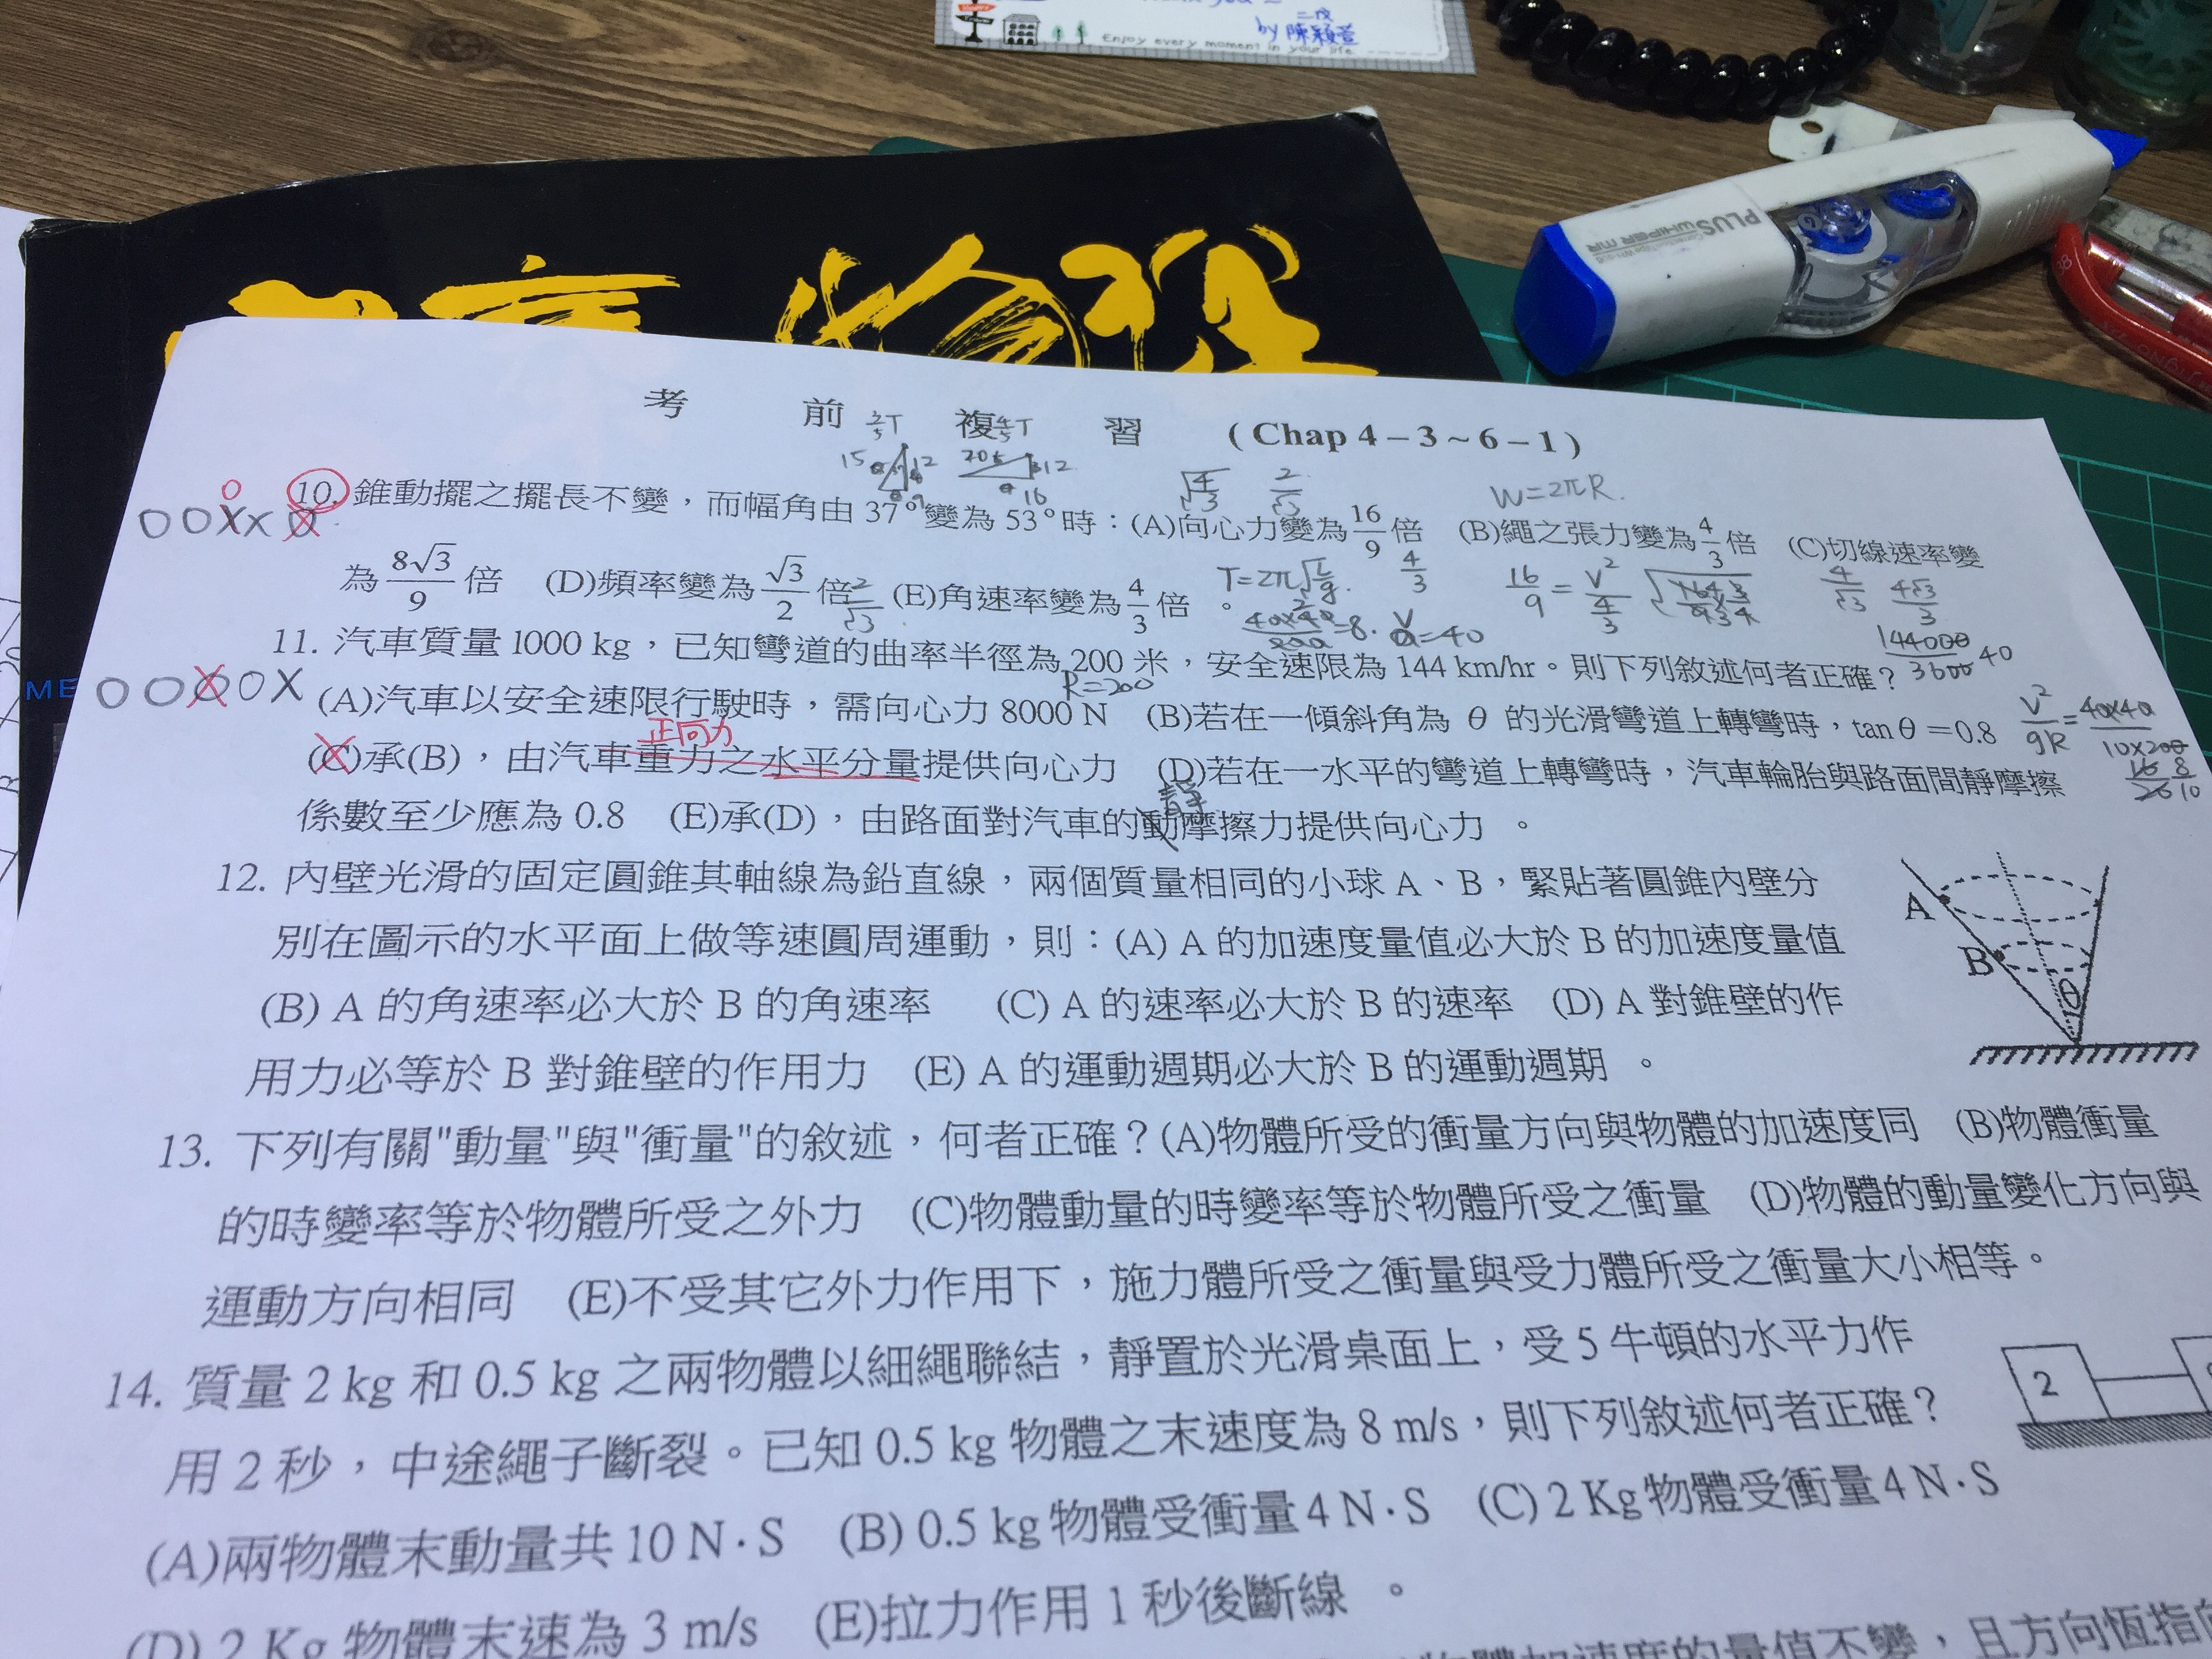 二戊
by 陳穎萱
Enjoy every moment in your life.
PLUS
WHIPER MR
物理
考 前 複 習 (Chap 4－3～6－1)
10. 錐動擺之擺長不變，而幅角由 37° 變為 53° 時：(A)向心力變為 16/9 倍 (B)繩之張力變為 4/3 倍 (C)切線速率變
為 8√3/9 倍 (D)頻率變為 √3/2 倍 (E)角速率變為 4/3 倍 。
W=2πR.
T=2π√L/g.
11. 汽車質量 1000 kg，已知彎道的曲率半徑為 200 米，安全速限為 144 km/hr。則下列敘述何者正確？
R=200
(A)汽車以安全速限行駛時，需向心力 8000 N (B)若在一傾斜角為 θ 的光滑彎道上轉彎時，tan θ = 0.8
正向力
(C)承(B)，由汽車重力之水平分量提供向心力 (D)若在一水平的彎道上轉彎時，汽車輪胎與路面間靜摩擦
靜
係數至少應為 0.8 (E)承(D)，由路面對汽車的動摩擦力提供向心力 。
12. 內壁光滑的固定圓錐其軸線為鉛直線，兩個質量相同的小球 A、B，緊貼著圓錐內壁分
別在圖示的水平面上做等速圓周運動，則：(A) A 的加速度量值必大於 B 的加速度量值
(B) A 的角速率必大於 B 的角速率 (C) A 的速率必大於 B 的速率 (D) A 對錐壁的作
用力必等於 B 對錐壁的作用力 (E) A 的運動週期必大於 B 的運動週期 。
A
B
θ
13. 下列有關"動量"與"衝量"的敘述，何者正確？(A)物體所受的衝量方向與物體的加速度同 (B)物體衝量
的時變率等於物體所受之外力 (C)物體動量的時變率等於物體所受之衝量 (D)物體的動量變化方向與
運動方向相同 (E)不受其它外力作用下，施力體所受之衝量與受力體所受之衝量大小相等。
14. 質量 2 kg 和 0.5 kg 之兩物體以細繩聯結，靜置於光滑桌面上，受 5 牛頓的水平力作
用 2 秒，中途繩子斷裂。已知 0.5 kg 物體之末速度為 8 m/s，則下列敘述何者正確？
2
(A)兩物體末動量共 10 N · S (B) 0.5 kg 物體受衝量 4 N · S (C) 2 Kg 物體受衝量 4 N · S
(D) 2 Kg 物體末速為 3 m/s (E)拉力作用 1 秒後斷線 。
物體加速度的量值不變，且方向恆指向